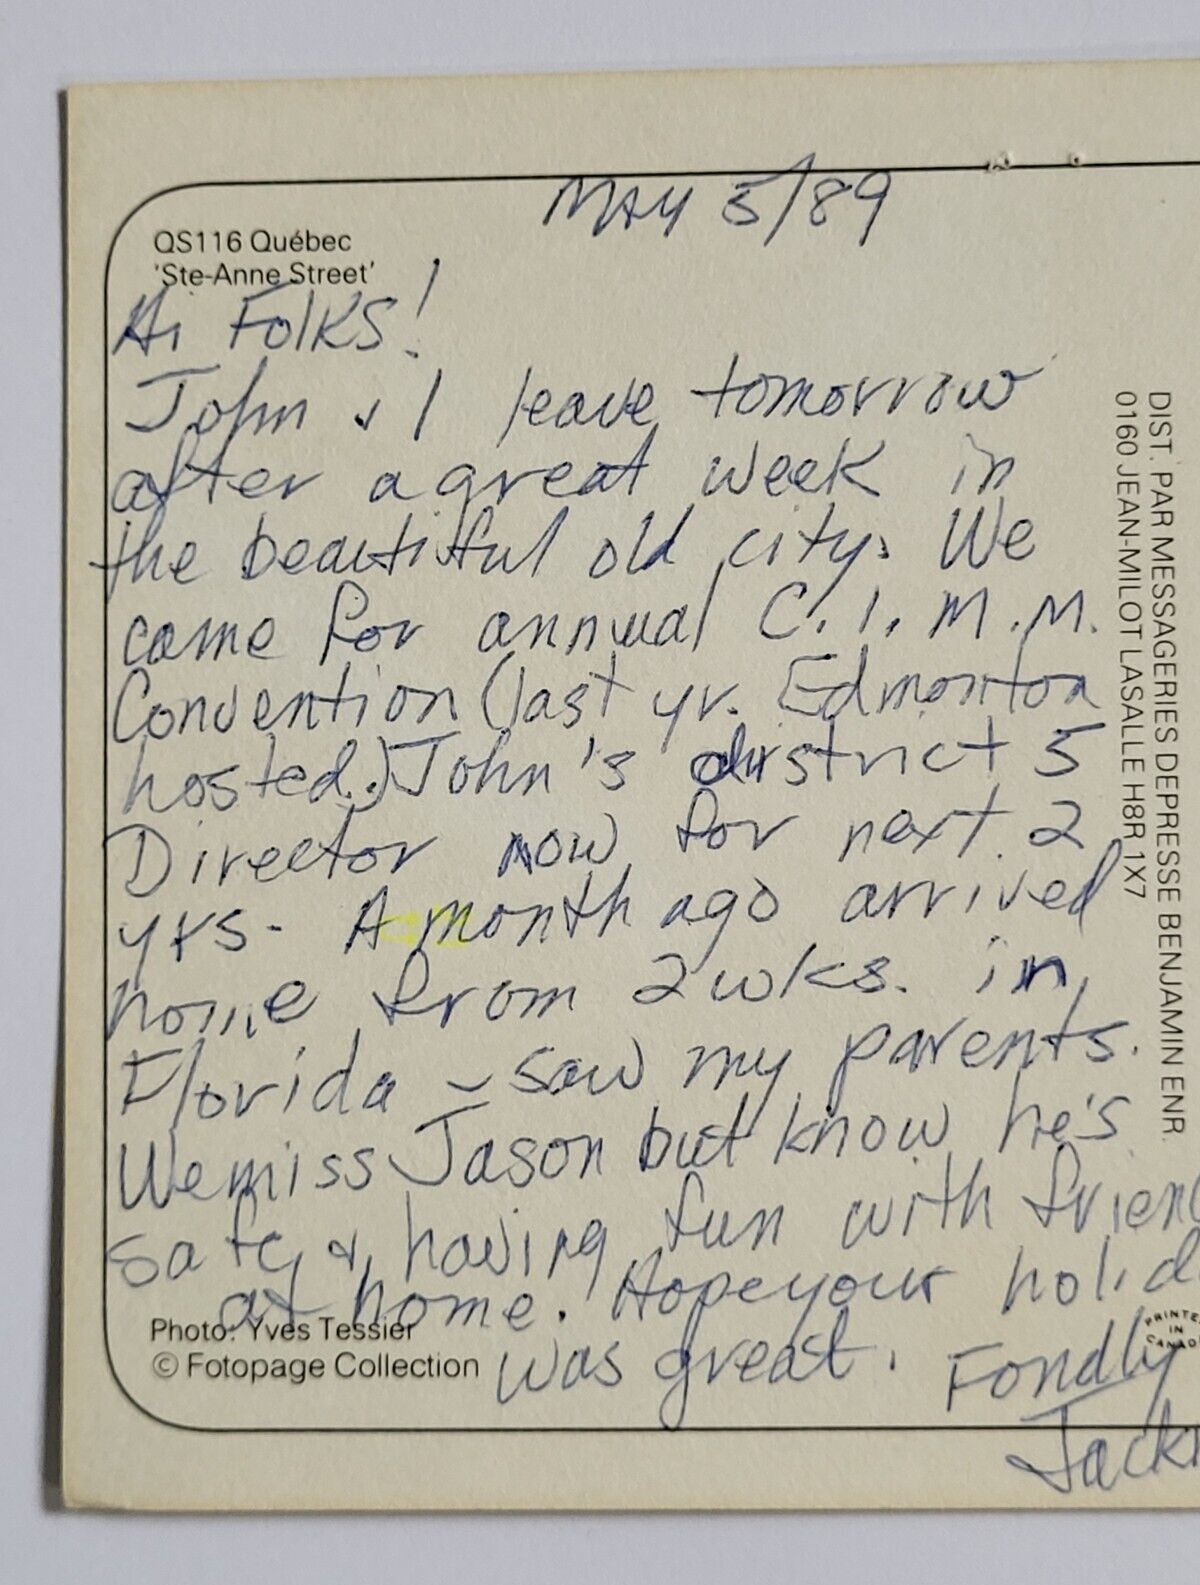 MAY 5/89
QS116 Québec
'Ste-Anne Street'
Hi Folks!
John & I leave tomorrow
after a great week in
the beautiful old city. We
came for annual C.I.M.M.
Convention (last yr. Edmonton
hosted.) John's district 5
Director now for next 2
yrs. A month ago arrived
home from 2 wks. in
Florida – saw my parents.
We miss Jason but know he's
safe & having fun with friend
at home. Hope your holid
was great. Fondly
Jack
Photo: Yves Tessier
© Fotopage Collection
DIST. PAR MESSAGERIES DEPRESSE BENJAMIN ENR.
0160 JEAN-MILOT LASALLE H8R 1X7
PRINTE
IN
CANAD